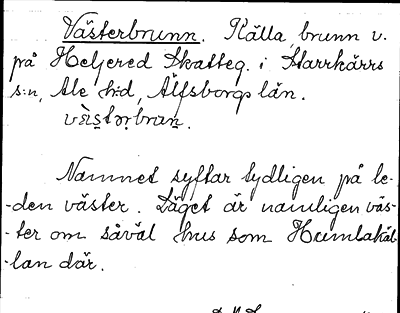 Västerbrunn. Källa, brunn v.
på Heljered Skatteg. i Starrkärrs
s:n, Ale h:d, Älfsborgs län.
Namnet syftar tydligen på le-
-den väster. Läget är namligen väs-
-ter om såväl hus som Humlakäl-
-lan där.